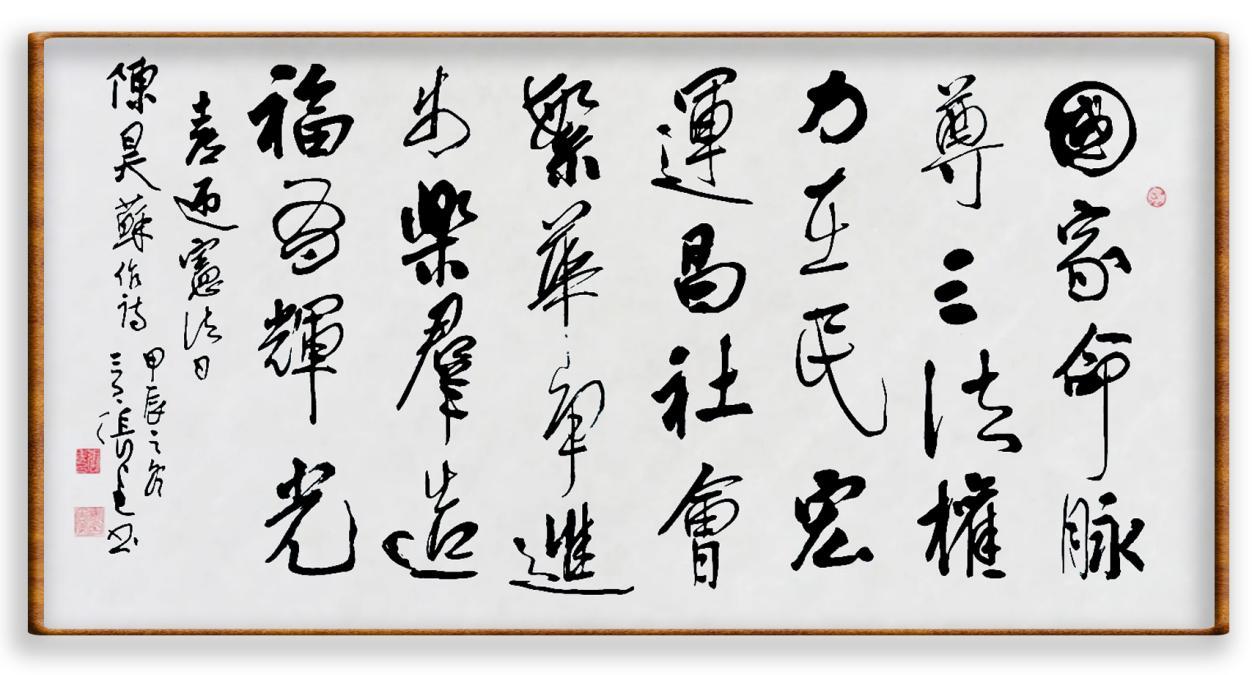 國家命脉
尊三法權
力在民宏
運昌社會
繁華進
步樂羣造
福輝光
喜迎憲法日
陳昊蘇作詩
甲辰之冬
張書